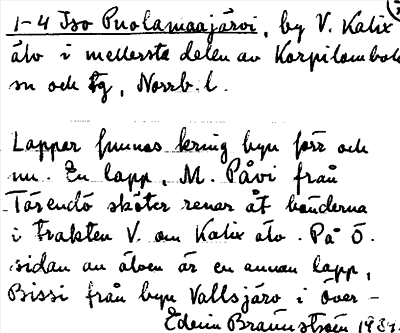 1-4 Iso Puolamaajärvi, by V. Kalix
älv i mellersta delen av Korpilombolo
sn och tg, Norrb. l.
Lappar funnos kring byn förr och
nu. En lapp, M. Påvi från
Tärendö sköter renar åt bönderna
i trakten V. om Kalix älv. På Ö.
sidan av älven är en annan lapp,
Bissi från byn Vallsjärv i Över-
Edvin Brännström 1934.